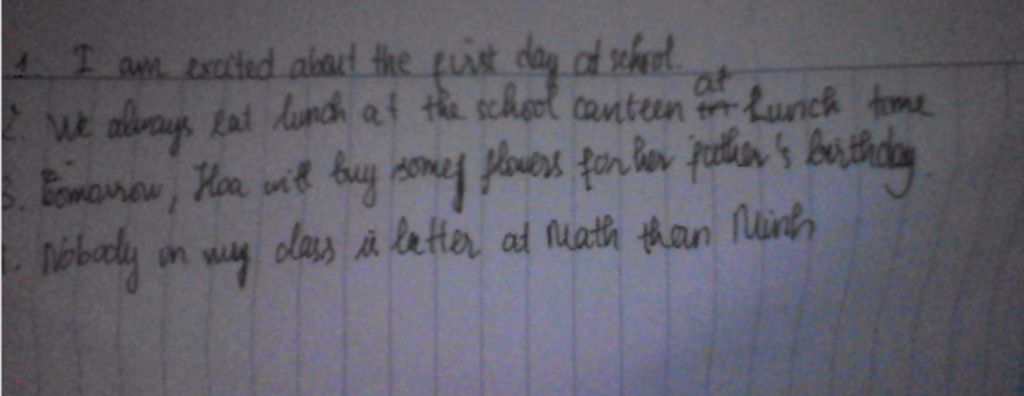 1. I am excited about the first day at school.
2. We always eat lunch at the school canteen at lunch time
3. Tomorrow, Hoa will buy some flowers for her father's birthday.
Nobody in my class is better at Math than Minh